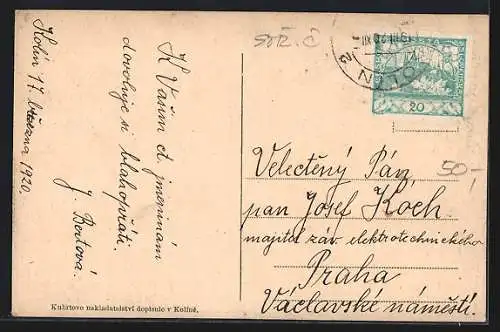 Kolín 17. března 1920.
K Vašim ct. jmeninám
dovoluje si blahopřáti.
J. Bertová.
Kubrtovo nakladatelství dopisnic v Kolíně.
STŘ. Č
20
50-
Velectěný Pán
pan Josef Koch
majitel záv. elektrotechnického
Praha
Václavské náměstí.